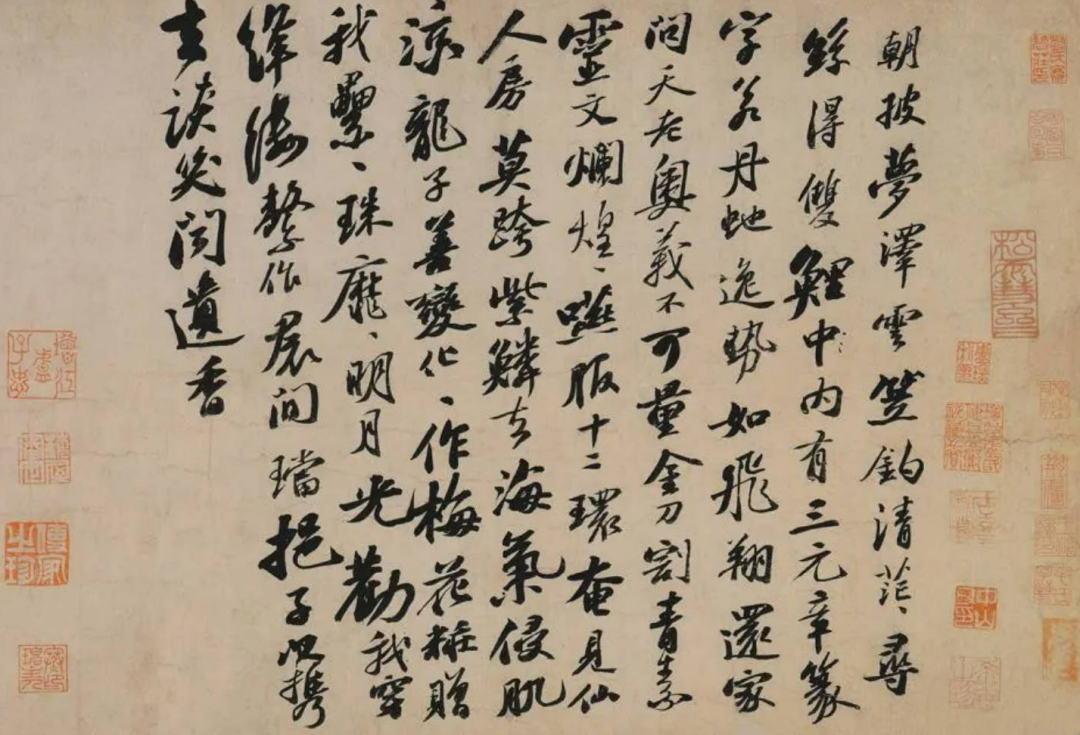 朝披夢澤雲笠釣清茫〻尋
絲得雙鯉中内有三元章篆
字若丹虵逸勢如飛翔還家
問天老奥義不可量金刀割青素
靈文爛煌〻嚥服十二環奄見仙
人房莫跨紫鱗去海氣侵肌
涼龍子善變化〻作梅花糚贈
我纍〻珠靡〻明月光勸我穿
絳縷繫作裙間璫挹子以攜
去談笑聞遺香